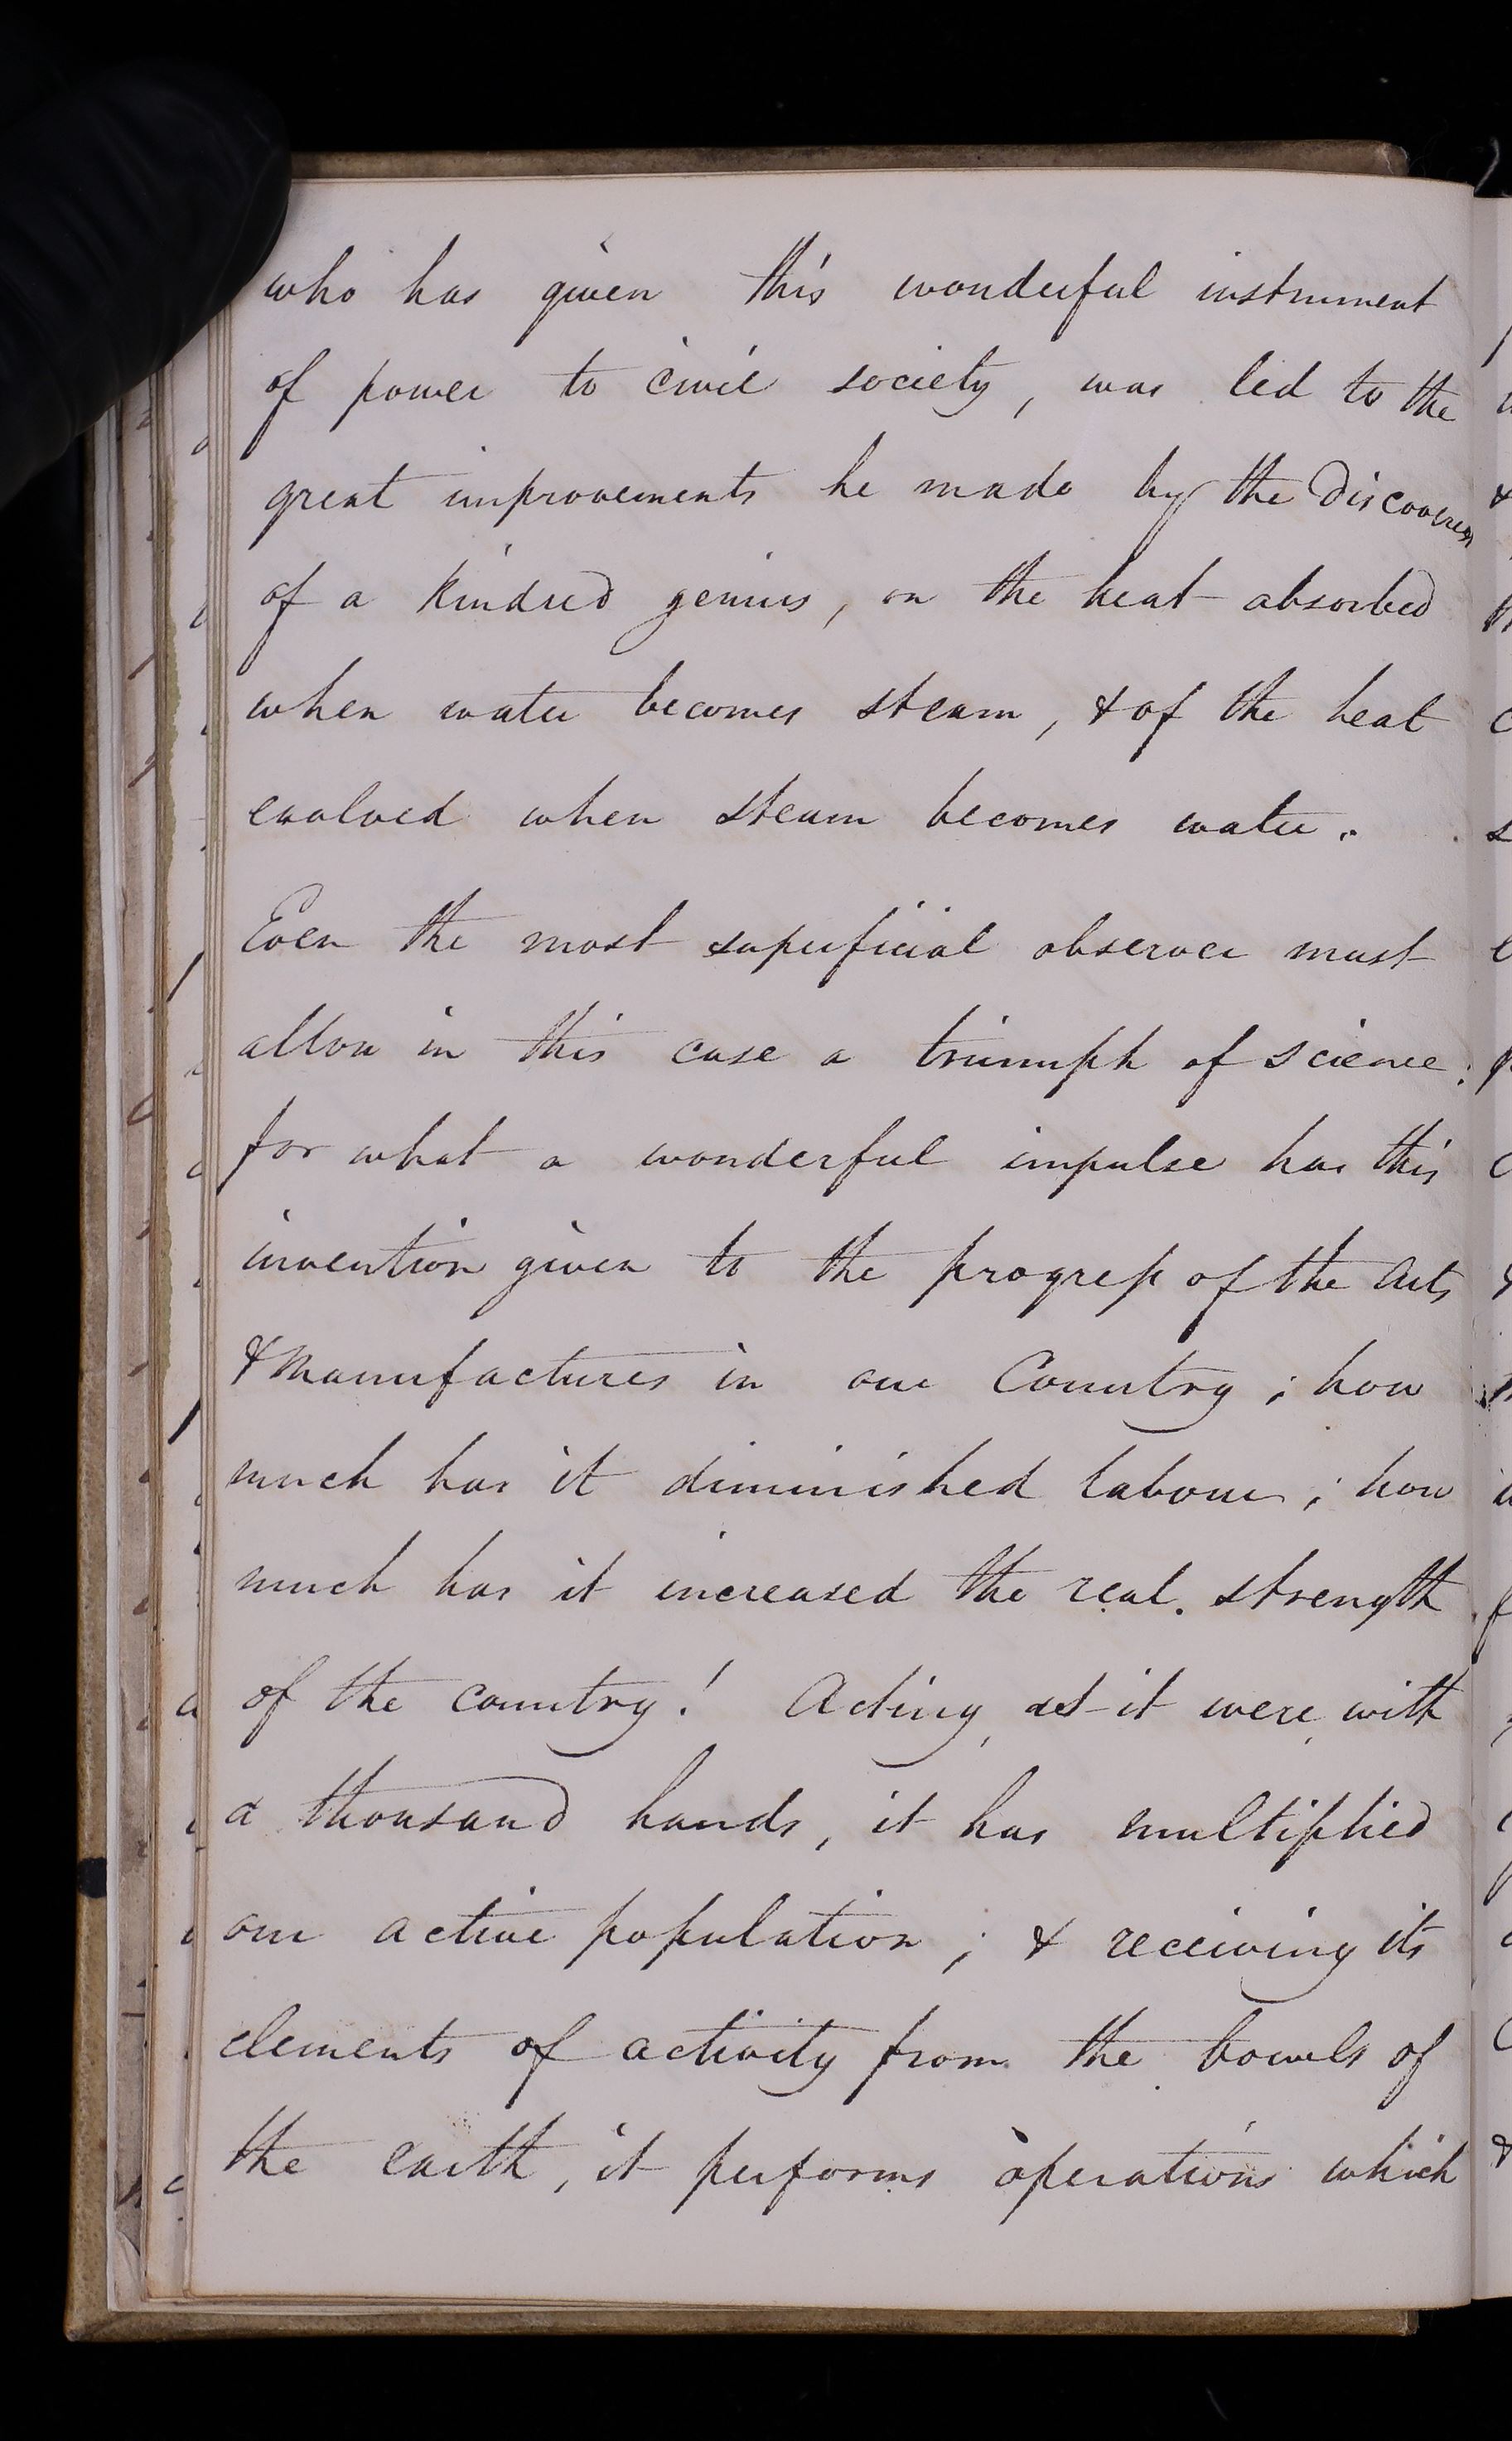 who has given this wonderful instrument
of power to civil society, was led to the
great improvements he made by the Discoveries
of a kindred genius, on the heat absorbed
when water becomes steam, & of the heat
evolved when steam becomes water.
Even the most superficial observer must
allow in this case a triumph of science;
for what a wonderful impulse has this
invention given to the progress of the Arts
& Manufactures in our Country; how
much has it diminished labour; how
much has it increased the real strength
of the country! Acting, as it were, with
a thousand hands, it has multiplied
our active population; & receiving its
elements of activity from the bowels of
the earth, it performs operations which